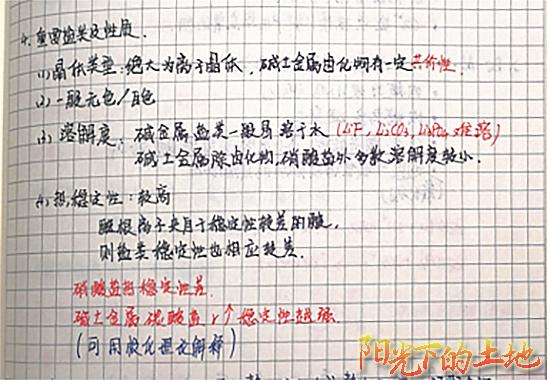 4. 重要盐类及性质.
(1) 晶体类型：绝大为离子晶体，碱土金属卤化物有一定共价性.
(2) 一般无色/白色
(3) 溶解度：碱金属盐类一般易溶于水 (LiF, Li2CO3, Li3PO4 难溶)
碱土金属除卤化物,硝酸盐外多数溶解度较小.
(4) 热稳定性：较高
酸根离子来自于稳定性较差的酸,
则盐类稳定性也相应较差.
硝酸盐热稳定性差.
碱土金属碳酸盐 r↑ 稳定性越强
(可用极化理论解释)
阳光下的土地